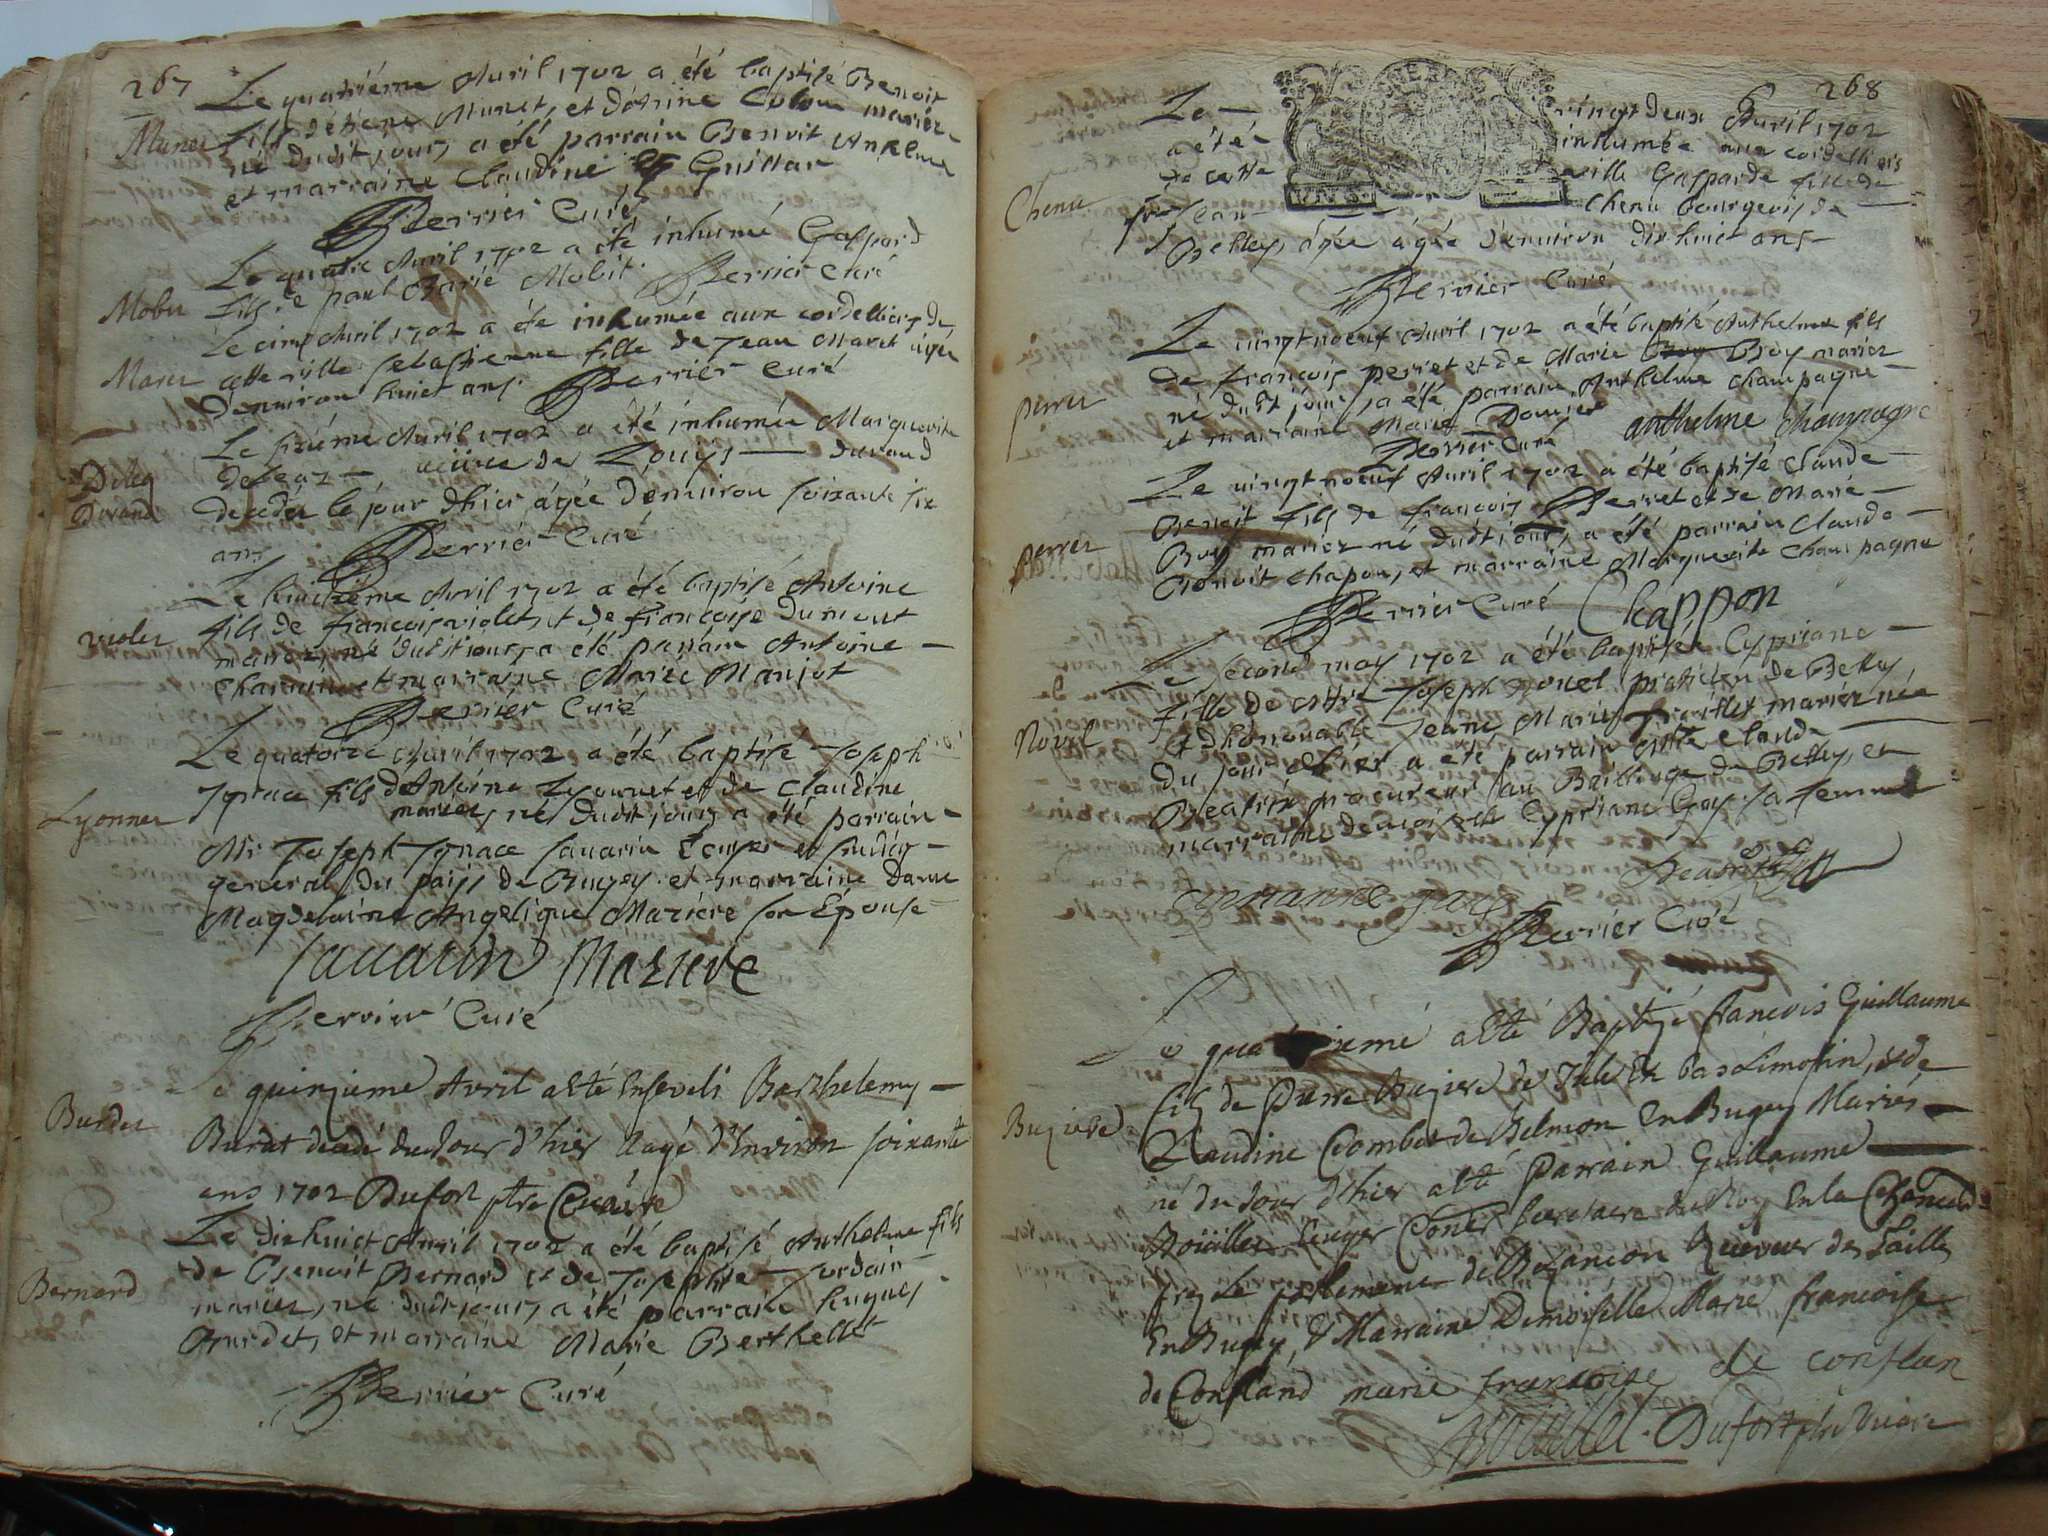 267
Le quatriéme Auril 1702 a été baptisé Benoit
Munet fils d'étiene Munet, et d'étienne Colom mariez
né dudit jour, a été parrain Benoit Anselme
et marraine Claudine Guillar
Perrier Curé
Le quatre Auril 1702 a été inhumé Gaspard
Mobit fils de paul Marie Mobit. Perrier Curé
Le cinq Auril 1702 a été inhumée aux cordelliers de
Maret cette ville sebastienne fille de Jean Maret agée
d'enuiron huict ans. Perrier Curé
Le siziéme Auril 1702 a été inhumée Marguerite
Deleaz deleaz — veuue de Louys — durand
Durand decedée le jour d'hier âgée d'enuiron soixante six
ans Perrier Curé
Le huictiéme Auril 1702 a été baptisé Antoine
violet fils de françois violet, et de françoise dumont
mariez, né dudit jour, a été parrain Antoine —
et marraine Marie Manjot
Perrier Curé
Le quatorze Auril 1702 a été baptisé Joseph
Ignace fils d'Antoine Lyonnet et de Claudine
Lyonnet mariez, né dudit jour, a été parrain —
Mr Joseph Ignace sauarin Ecuyer et sindicq —
general du païs de Bugey. et marraine Dame
Magdelaine Angelique Maziere son Épouse
sauarin Maziere
Perrier Curé
Le quinzieme Avril a Eté Enseveli Barthelemy —
Burdet Burdet decedé du Jour d'hier aagé d'Environ soixante
ans 1702 Dufort ptre Vicaire
Le dixhuict Auril 1702 a été baptisé Anthelme fils
Bernard de Benoit Bernard et de Josephte Jordain
mariez, né dudit jour, a été parrain hugues
Bourdet, et marraine Marie Berthellet
Perrier Curé
268
Le — vingt deux Auril 1702
a été — inhumée aux cordelliers
de cette — ville Gasparde fille de
Chenu feu Jean — Chenu bourgeois de —
Belley, âgée âgée d'enuiron dixhuict ans —
Perrier Curé
Le vingt noeuf Auril 1702 a été baptisé Anthelme fils
de françois perret et de Marie Buy mariez
perret né dudit jour, a été parrain Anthelme champagne —
et marraine Marie Douvier
Perrier Curé anthelme champagne
Le vingt noeuf Auril 1702 a été baptisé Claude —
Benoit fils de françois Perret et de Marie —
perret Buy mariez né dudit jour, a été parrain Claude —
Benoit chapon, et marraine Marguerite Champagne
Perrier Curé Chappon
Le second may 1702 a été baptisée Cypriane —
fille de Mtre Joseph Novel praticien de Belley,
Novel et d'honnorable Jeanne Marie mariez née
du jour d'hier a été parrain Mtre Claude —
Beatrix procureur au Bailliage de Belley, et
marraine demoiselle Cypriane Goy sa femme
Beatrix
cipriane goy
Perrier Curé
Le quatrieme a Eté Baptisé francois Guillaume
fils de Pierre Bugiere de Tule En bas Limosin, & de
Bugiere Claudine Combet de Belmon En Bugey Mariés —
né du Jour d'hier a Eté Parrain Guillaume —
Bouillet Ecuyer Coner Secretaire du Roy En la Chancel-
prez Le parlement de Bezançon Receveur des Tailles
En Bugey, & Marraine Demoiselle Marie francoise
de Confland marie francoise de conflan
Bouillet . Dufort ptre Vicaire